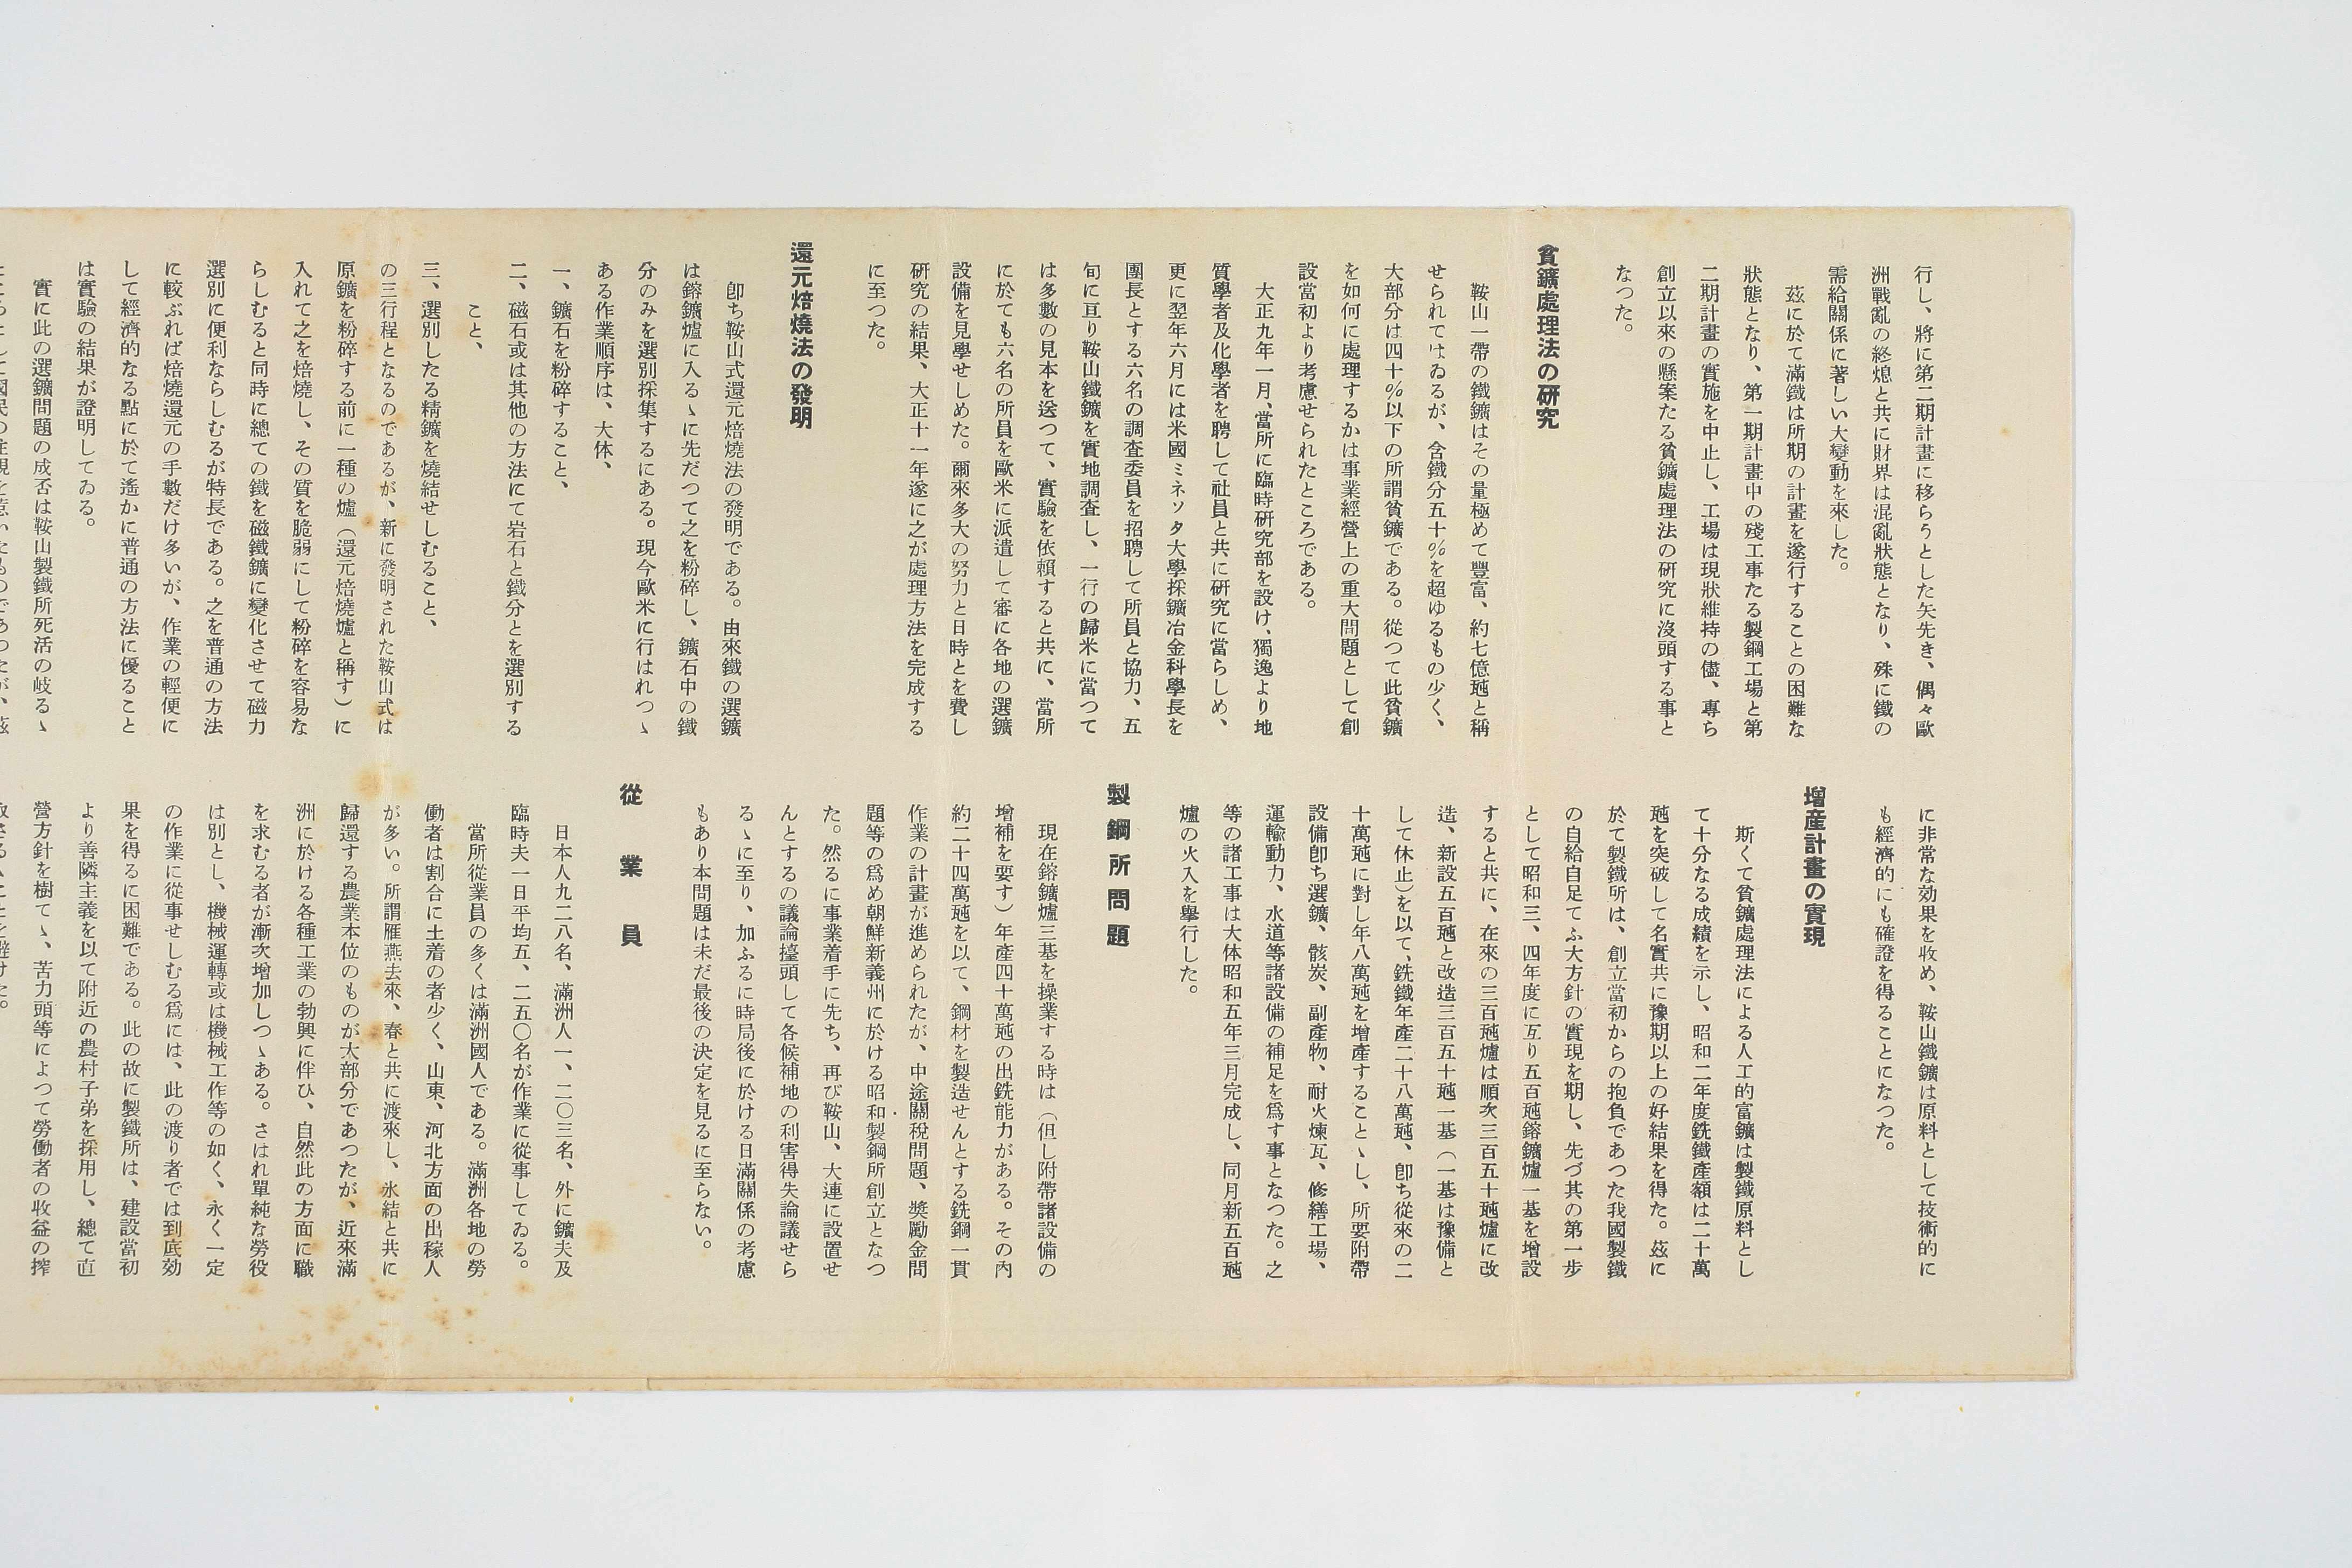 行し、將に第二期計畫に移らうとした矢先き、偶々歐
洲戰亂の終熄と共に財界は混亂狀態となり、殊に鐵の
需給關係に著しい大變動を來した。
茲に於て滿鐵は所期の計畫を遂行することの困難な
狀態となり、第一期計畫中の殘工事たる製鋼工場と第
二期計畫の實施を中止し、工場は現狀維持の儘、專ら
創立以來の懸案たる貧鑛處理法の硏究に沒頭する事と
なつた。
貧鑛處理法の硏究
鞍山一帶の鐵鑛はその量極めて豐富、約七億瓲と稱
せられてはゐるが、含鐵分五十％を超ゆるもの少く、
大部分は四十％以下の所謂貧鑛である。從つて此貧鑛
を如何に處理するかは事業經營上の重大問題として創
設當初より考慮せられたところである。
大正九年一月、當所に臨時硏究部を設け、獨逸より地
質學者及化學者を聘して社員と共に硏究に當らしめ、
更に翌年六月には米國ミネソタ大學採鑛冶金科學長を
團長とする六名の調査委員を招聘して所員と協力、五
旬に亘り鞍山鐵鑛を實地調査し、一行の歸米に當つて
は多數の見本を送つて、實驗を依賴すると共に、當所
に於ても六名の所員を歐米に派遣して審に各地の選鑛
設備を見學せしめた。爾來多大の努力と日時とを費し
硏究の結果、大正十一年遂に之が處理方法を完成する
に至つた。
還元焙燒法の發明
卽ち鞍山式還元焙燒法の發明である。由來鐵の選鑛
は鎔鑛爐に入るゝに先だつて之を粉碎し、鑛石中の鐵
分のみを選別採集するにある。現今歐米に行はれつゝ
ある作業順序は、大体、
一、鑛石を粉碎すること、
二、磁石或は其他の方法にて岩石と鐵分とを選別する
こと、
三、選別したる精鑛を燒結せしむること、
の三行程となるのであるが、新に發明された鞍山式は
原鑛を粉碎する前に一種の爐（還元焙燒爐と稱す）に
入れて之を焙燒し、その質を脆弱にして粉碎を容易な
らしむると同時に總ての鐵を磁鐵鑛に變化させて磁力
選別に便利ならしむるが特長である。之を普通の方法
に較ぶれば焙燒還元の手數だけ多いが、作業の輕便に
して經濟的なる點に於て遙かに普通の方法に優ること
は實驗の結果が證明してゐる。
實に此の選鑛問題の成否は鞍山製鐵所死活の岐るゝ
に非常な効果を收め、鞍山鐵鑛は原料として技術的に
も經濟的にも確證を得ることになつた。
增產計畫の實現
斯くて貧鑛處理法による人工的富鑛は製鐵原料とし
て十分なる成績を示し、昭和二年度銑鐵產額は二十萬
瓲を突破して名實共に豫期以上の好結果を得た。茲に
於て製鐵所は、創立當初からの抱負であつた我國製鐵
の自給自足てふ大方針の實現を期し、先づ其の第一步
として昭和三、四年度に亙り五百瓲鎔鑛爐一基を增設
すると共に、在來の三百瓲爐は順次三百五十瓲爐に改
造、新設五百瓲と改造三百五十瓲一基（一基は豫備と
して休止）を以て、銑鐵年產二十八萬瓲、卽ち從來の二
十萬瓲に對し年八萬瓲を增產することゝし、所要附帶
設備卽ち選鑛、骸炭、副產物、耐火煉瓦、修繕工場、
運輸動力、水道等諸設備の補足を爲す事となつた。之
等の諸工事は大体昭和五年三月完成し、同月新五百瓲
爐の火入を擧行した。
製鋼所問題
現在鎔鑛爐三基を操業する時は（但し附帶諸設備の
增補を要す）年產四十萬瓲の出銑能力がある。その內
約二十四萬瓲を以て、鋼材を製造せんとする銑鋼一貫
作業の計畫が進められたが、中途關稅問題、奬勵金問
題等の爲め朝鮮新義州に於ける昭和製鋼所創立となつ
た。然るに事業着手に先ち、再び鞍山、大連に設置せ
んとするの議論擡頭して各候補地の利害得失論議せら
るゝに至り、加ふるに時局後に於ける日滿關係の考慮
もあり本問題は未だ最後の決定を見るに至らない。
從業員
日本人九二八名、滿洲人一、二〇三名、外に鑛夫及
臨時夫一日平均五、二五〇名が作業に從事してゐる。
當所從業員の多くは滿洲國人である。滿洲各地の勞
働者は割合に土着の者少く、山東、河北方面の出稼人
が多い。所謂雁燕去來、春と共に渡來し、氷結と共に
歸還する農業本位のものが大部分であつたが、近來滿
洲に於ける各種工業の勃興に伴ひ、自然此の方面に職
を求むる者が漸次增加しつゝある。さはれ單純な勞役
は別とし、機械運轉或は機械工作等の如く、永く一定
の作業に從事せしむる爲には、此の渡り者では到底効
果を得るに困難である。此の故に製鐵所は、建設當初
より善隣主義を以て附近の農村子弟を採用し、總て直
營方針を樹てゝ、苦力頭等によつて勞働者の收益の搾